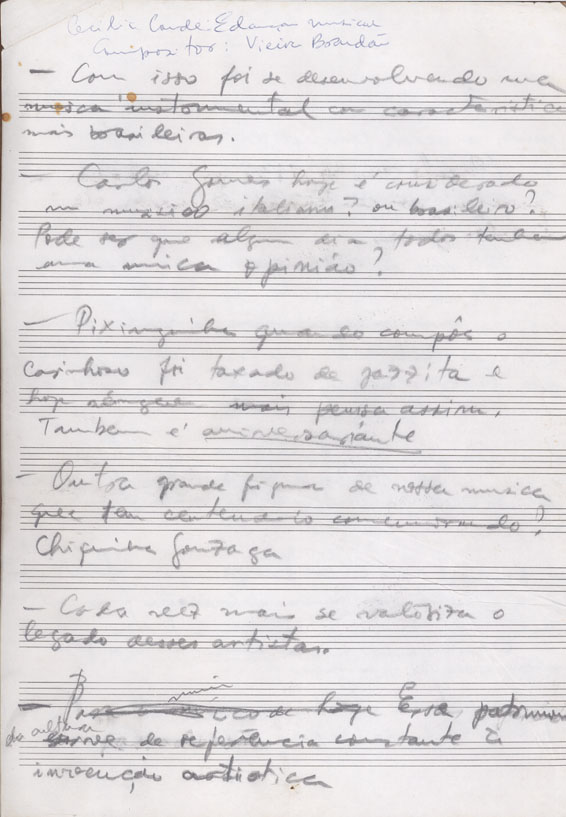 Cecilia Conde: Educação musical
Compositor: Vieira Brandão
— Com isso foi se desenvolvendo uma
musica instrumental com caracteristicas
mais brasileiras.
— Carlos Gomes hoje é considerado
um musico italiano? ou brasileiro?
Pode ser que algum dia todos tenham
uma unica opinião?
— Pixinguinha quando compôs o
Carinhoso foi taxado de jazzista e
hoje ninguem mais pensa assim.
Tambem é aniversariante
— Outra grande figura de nossa musica
que tem centenário comemorado?
Chiquinha Gonzaga
— Cada vez mais se valoriza o
legado desses artistas.
— de hoje Essa patrimonio
da cultura
serve de referência constante à
invenção artistica